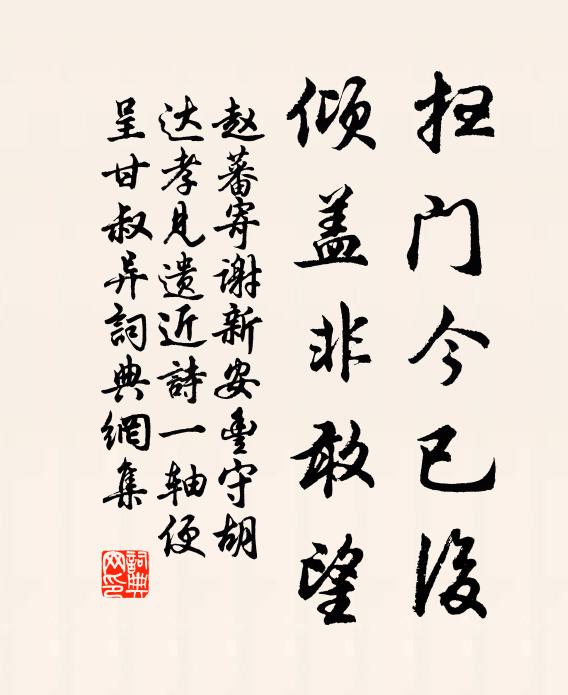 扫门今已后
倾盖非敢望
赵蕃寄谢新安丰守胡
达孝见遗近詩一軸便
呈甘叔异詞典網集
詞典网印